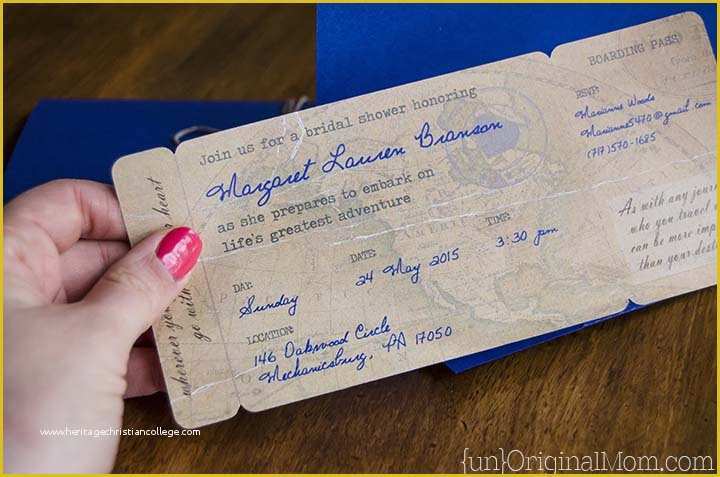 wherever you heart
go with
Join us for a bridal shower honoring
Margaret Lauren Branson
as she prepares to embark on
life's greatest adventure
DAY:
Sunday
DATE:
24 May 2015
TIME
3:30 pm
LOCATION:
146 Oakwood Circle
Mechanicsburg, PA 17050
BOARDING PASS
RSVP:
Marianne Woods
Marianne5470@gmail.com
(717)570-1685
As with any jour
who you travel
can be more imp
than your dest
www.heritagechristiancollege.com
{un}OriginalMom.com}